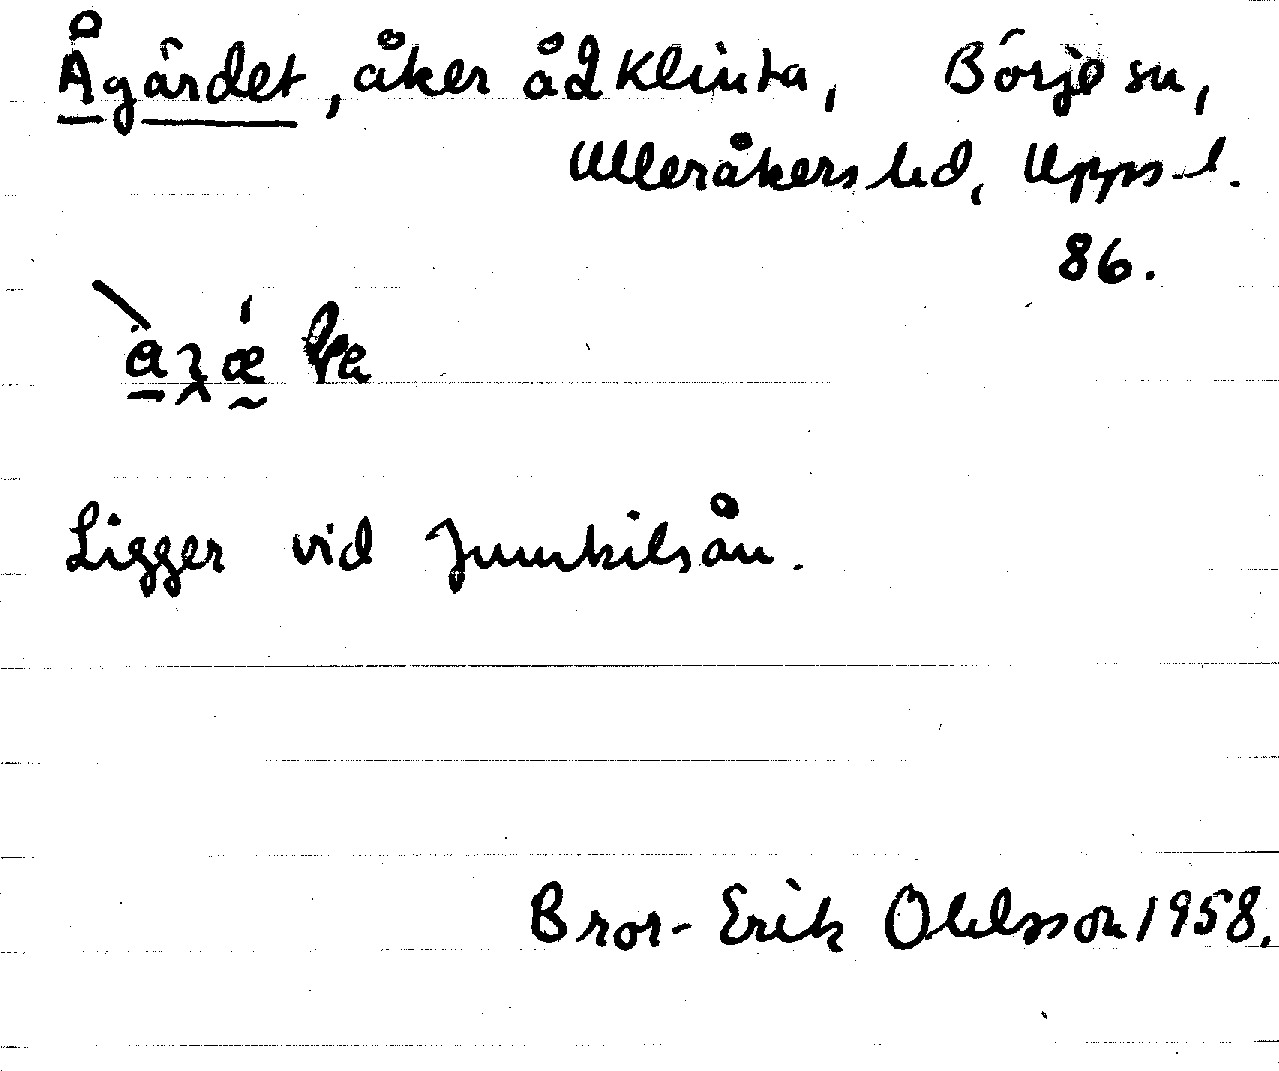 Ågärdet, åker å2 Klinta, Börje sn,
Ulleråkers hd, Upps-l.
86.
Ligger vid Jumkilsån.
Bror-Erik Ohlsson 1958.